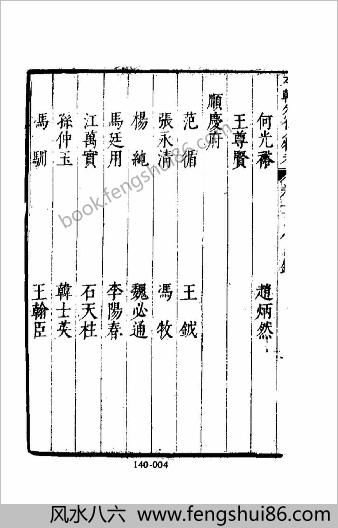 何光裕 趙炳然
王尊賢
順慶府
范循 王鉞
張永清 馮牧
楊純 魏必通
馬廷用 李陽春
江萬實 石天柱
孫仲玉 韓士英
馬馴 王翰臣
book.fengshui86.com
140-004
风水八六 www.fengshui86.com